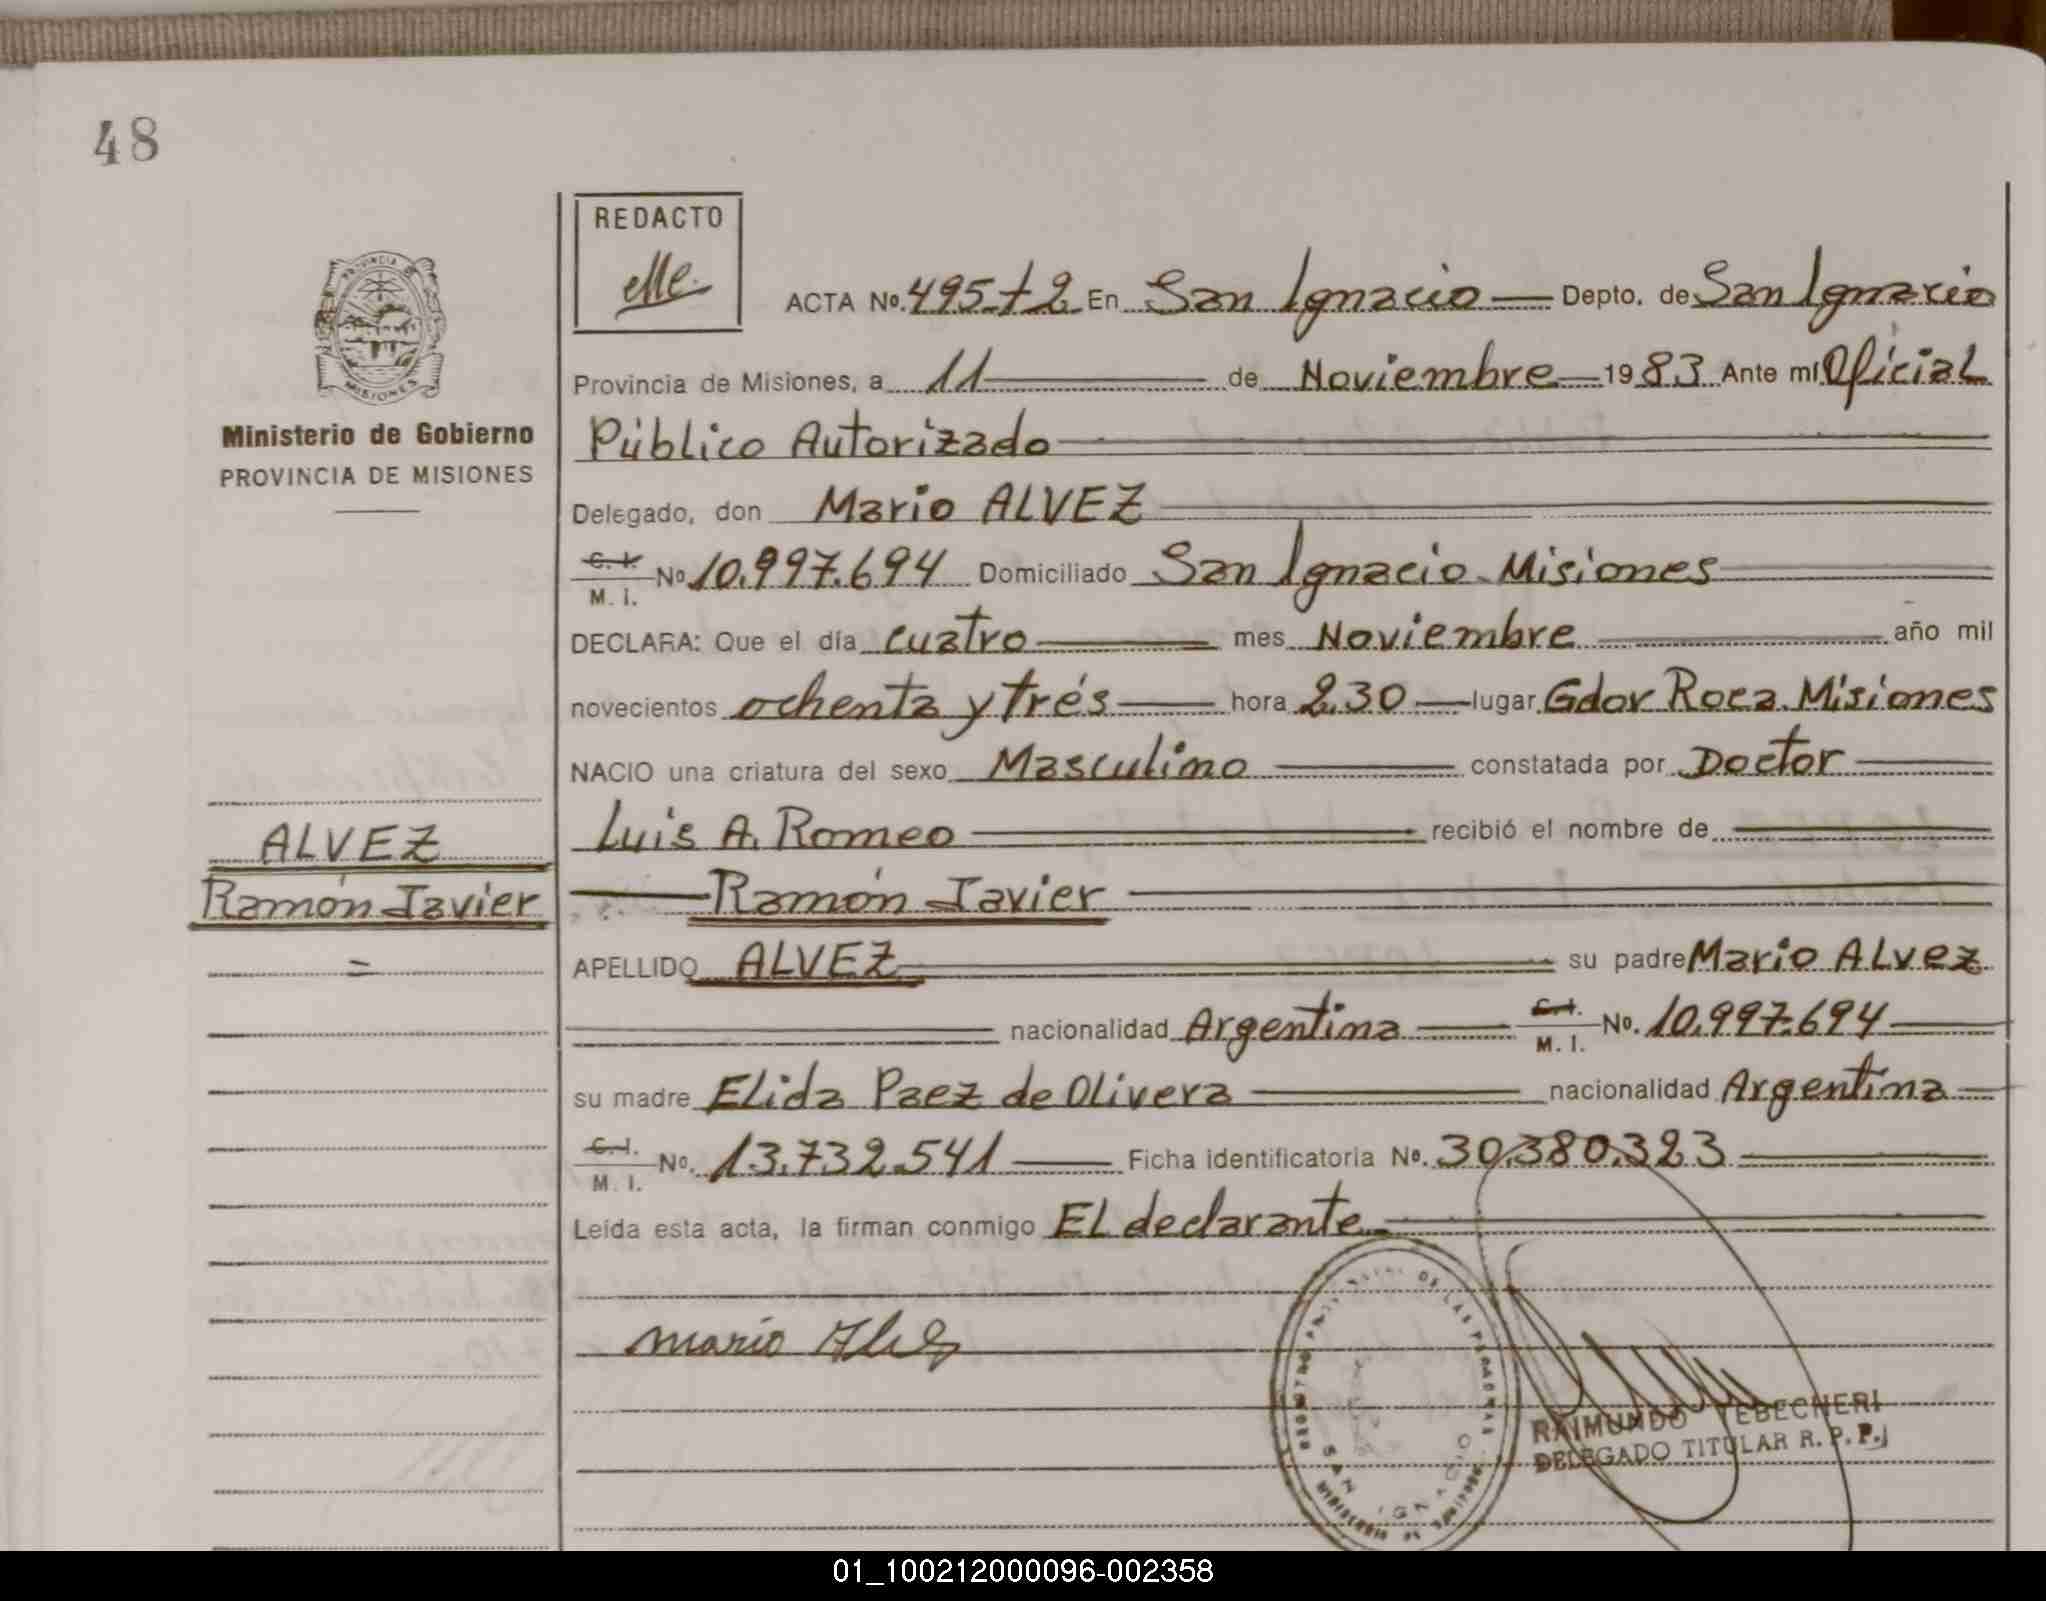 48
REDACTO
elle.
PROVINCIA DE
MISIONES
Ministerio de Gobierno
PROVINCIA DE MISIONES
ACTA No. 495 t2 En San Ignacio Depto. de San Ignacio
Provincia de Misiones, a 11 de Noviembre 1983 Ante mí Oficial
Público Autorizado
Delegado, don Mario ALVEZ
C. I.
M. I. No 10.997.694 Domiciliado San Ignacio. Misiones
DECLARA: Que el día cuatro mes Noviembre año mil
novecientos ochenta y trés hora 2.30 lugar Gdor Roca. Misiones
NACIO una criatura del sexo Masculino constatada por Doctor
Luis A. Romeo recibió el nombre de
Ramón Javier
APELLIDO ALVEZ su padre Mario ALvez
nacionalidad Argentina C. I.
M. I. No. 10.997.694
su madre ELida Paez de Olivera nacionalidad Argentina
C. I.
M. I. No. 13.732.541 Ficha identificatoria No. 30.380.323
Leída esta acta, la firman conmigo EL declarante
ALVEZ
Ramón Javier
=
mario Alvez
DE LAS PERSONAS
SAN IGNACIO
RAIMUNDO YEBECHERI
DELEGADO TITULAR R. P. P.
01_100212000096-002358